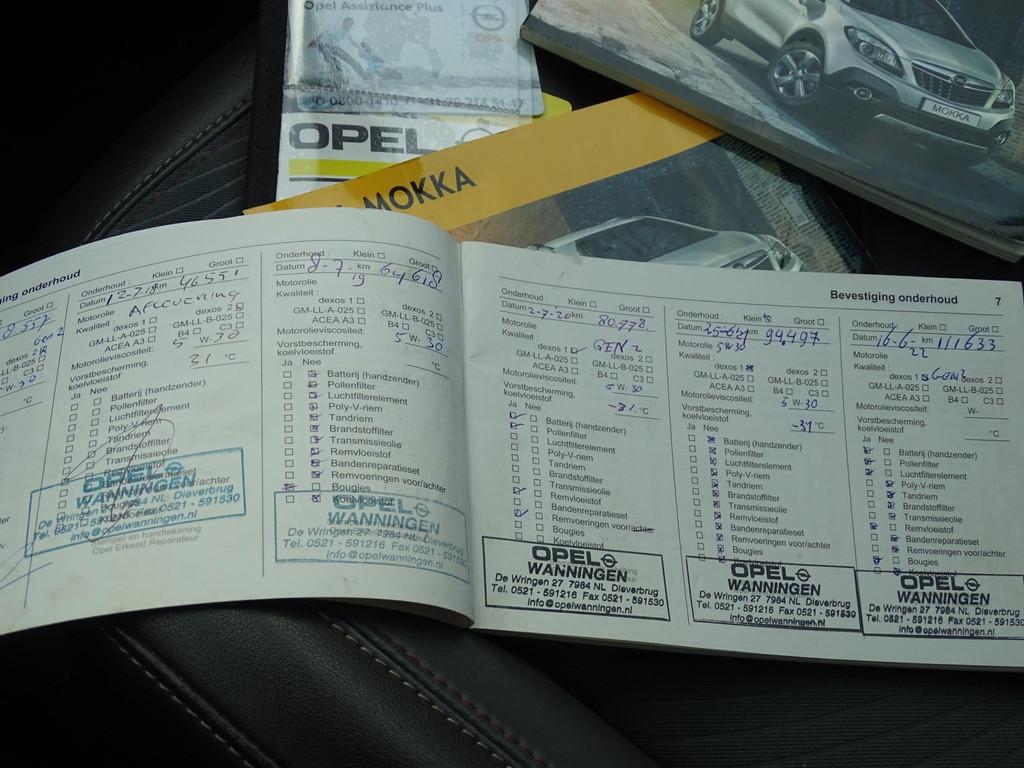 Opel Assistance Plus
OPEL
OPEL
MOKKA
MOKKA
Bevestiging onderhoud 7
ging onderhoud
Klein Groot
Datum 12-7-18 km 46551
Motorolie AFLEVERING
Kwaliteit:
dexos 1 dexos 2
GM-LL-A-025 GM-LL-B-025
ACEA A3 B4 C3
Motorolieviscositeit: 5 W-30
Vorstbescherming,
koelvloeistof 31 °C
Ja Nee
Batterij (handzender)
Pollenfilter
Luchtfilterelement
Poly-V-riem
Tandriem
Brandstoffilter
Transmissieolie
Remvloeistof
OPEL
WANNINGEN
De Wringen 27 7984 NL Dieverbrug
Tel. 0521 - 591216 Fax 0521 - 591530
info@opelwanningen.nl
Stempel en handtekening
Opel Erkend Reparateur
Onderhoud: Klein Groot
Datum 8-7-19 km 64618
Motorolie
Kwaliteit:
dexos 1 dexos 2
GM-LL-A-025 GM-LL-B-025
ACEA A3 B4 C3
Motorolieviscositeit: 5 W-30
Vorstbescherming,
koelvloeistof °C
Ja Nee
Batterij (handzender)
Pollenfilter
Luchtfilterelement
Poly-V-riem
Tandriem
Brandstoffilter
Transmissieolie
Remvloeistof
Bandenreparatieset
Remvoeringen voor/achter
Bougies
Koelvloeistof
OPEL
WANNINGEN
De Wringen 27 7984 NL Dieverbrug
Tel. 0521 - 591216 Fax 0521 - 591530
info@opelwanningen.nl
Onderhoud: Klein Groot
Datum 2-7-20 km 80.778
Motorolie
Kwaliteit: GEN 2
dexos 1 dexos 2
GM-LL-A-025 GM-LL-B-025
ACEA A3 B4 C3
Motorolieviscositeit: 5 W-30
Vorstbescherming,
koelvloeistof -31 °C
Ja Nee
Batterij (handzender)
Pollenfilter
Luchtfilterelement
Poly-V-riem
Tandriem
Brandstoffilter
Transmissieolie
Remvloeistof
Bandenreparatieset
Remvoeringen voor/achter
Bougies
Koelvloeistof
OPEL
WANNINGEN
De Wringen 27 7984 NL Dieverbrug
Tel. 0521 - 591216 Fax 0521 - 591530
info@opelwanningen.nl
Onderhoud: Klein Groot
Datum km 94,497
Motorolie 5W30
Kwaliteit:
dexos 1 dexos 2
GM-LL-A-025 GM-LL-B-025
ACEA A3 B4 C3
Motorolieviscositeit: 5 W-30
Vorstbescherming,
koelvloeistof -31 °C
Ja Nee
Batterij (handzender)
Pollenfilter
Luchtfilterelement
Poly-V-riem
Tandriem
Brandstoffilter
Transmissieolie
Remvloeistof
Bandenreparatieset
Remvoeringen voor/achter
Bougies
OPEL
WANNINGEN
De Wringen 27 7984 NL Dieverbrug
Tel. 0521 - 591216 Fax 0521 - 591530
info@opelwanningen.nl
Onderhoud: Klein Groot
Datum 16-6-22 km 111633
Motorolie
Kwaliteit: Gen2
dexos 1 dexos 2
GM-LL-A-025 GM-LL-B-025
ACEA A3 B4 C3
Motorolieviscositeit: W-
Vorstbescherming,
koelvloeistof °C
Ja Nee
Batterij (handzender)
Pollenfilter
Luchtfilterelement
Poly-V-riem
Tandriem
Brandstoffilter
Transmissieolie
Remvloeistof
Bandenreparatieset
Remvoeringen voor/achter
Bougies
Koelvloeistof
OPEL
WANNINGEN
De Wringen 27 7984 NL Dieverbrug
Tel. 0521 - 591216 Fax 0521 - 591530
info@opelwanningen.nl